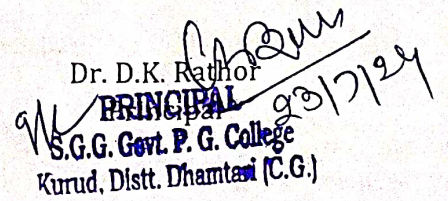 Dr. D.K. Rathor
PRINCIPAL
Principal
23/7/24
S.G.G. Govt. P. G. College
Kurud, Distt. Dhamtari (C.G.)